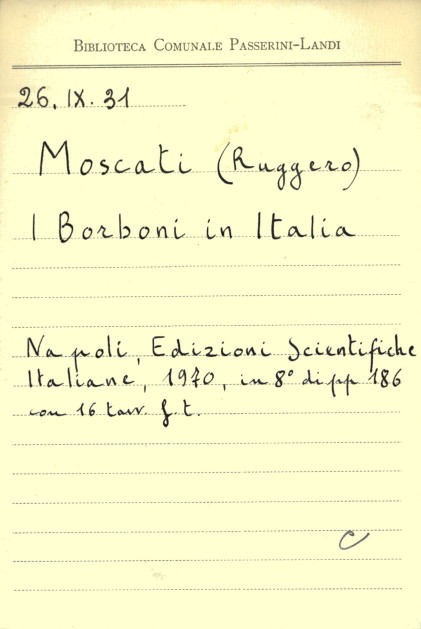 BIBLIOTECA COMUNALE PASSERINI-LANDI
26. IX. 31
Moscati (Ruggero)
I Borboni in Italia
Napoli, Edizioni Scientifiche
Italiane, 1970, in 8° di pp 186
con 16 tavv. f.t.
C